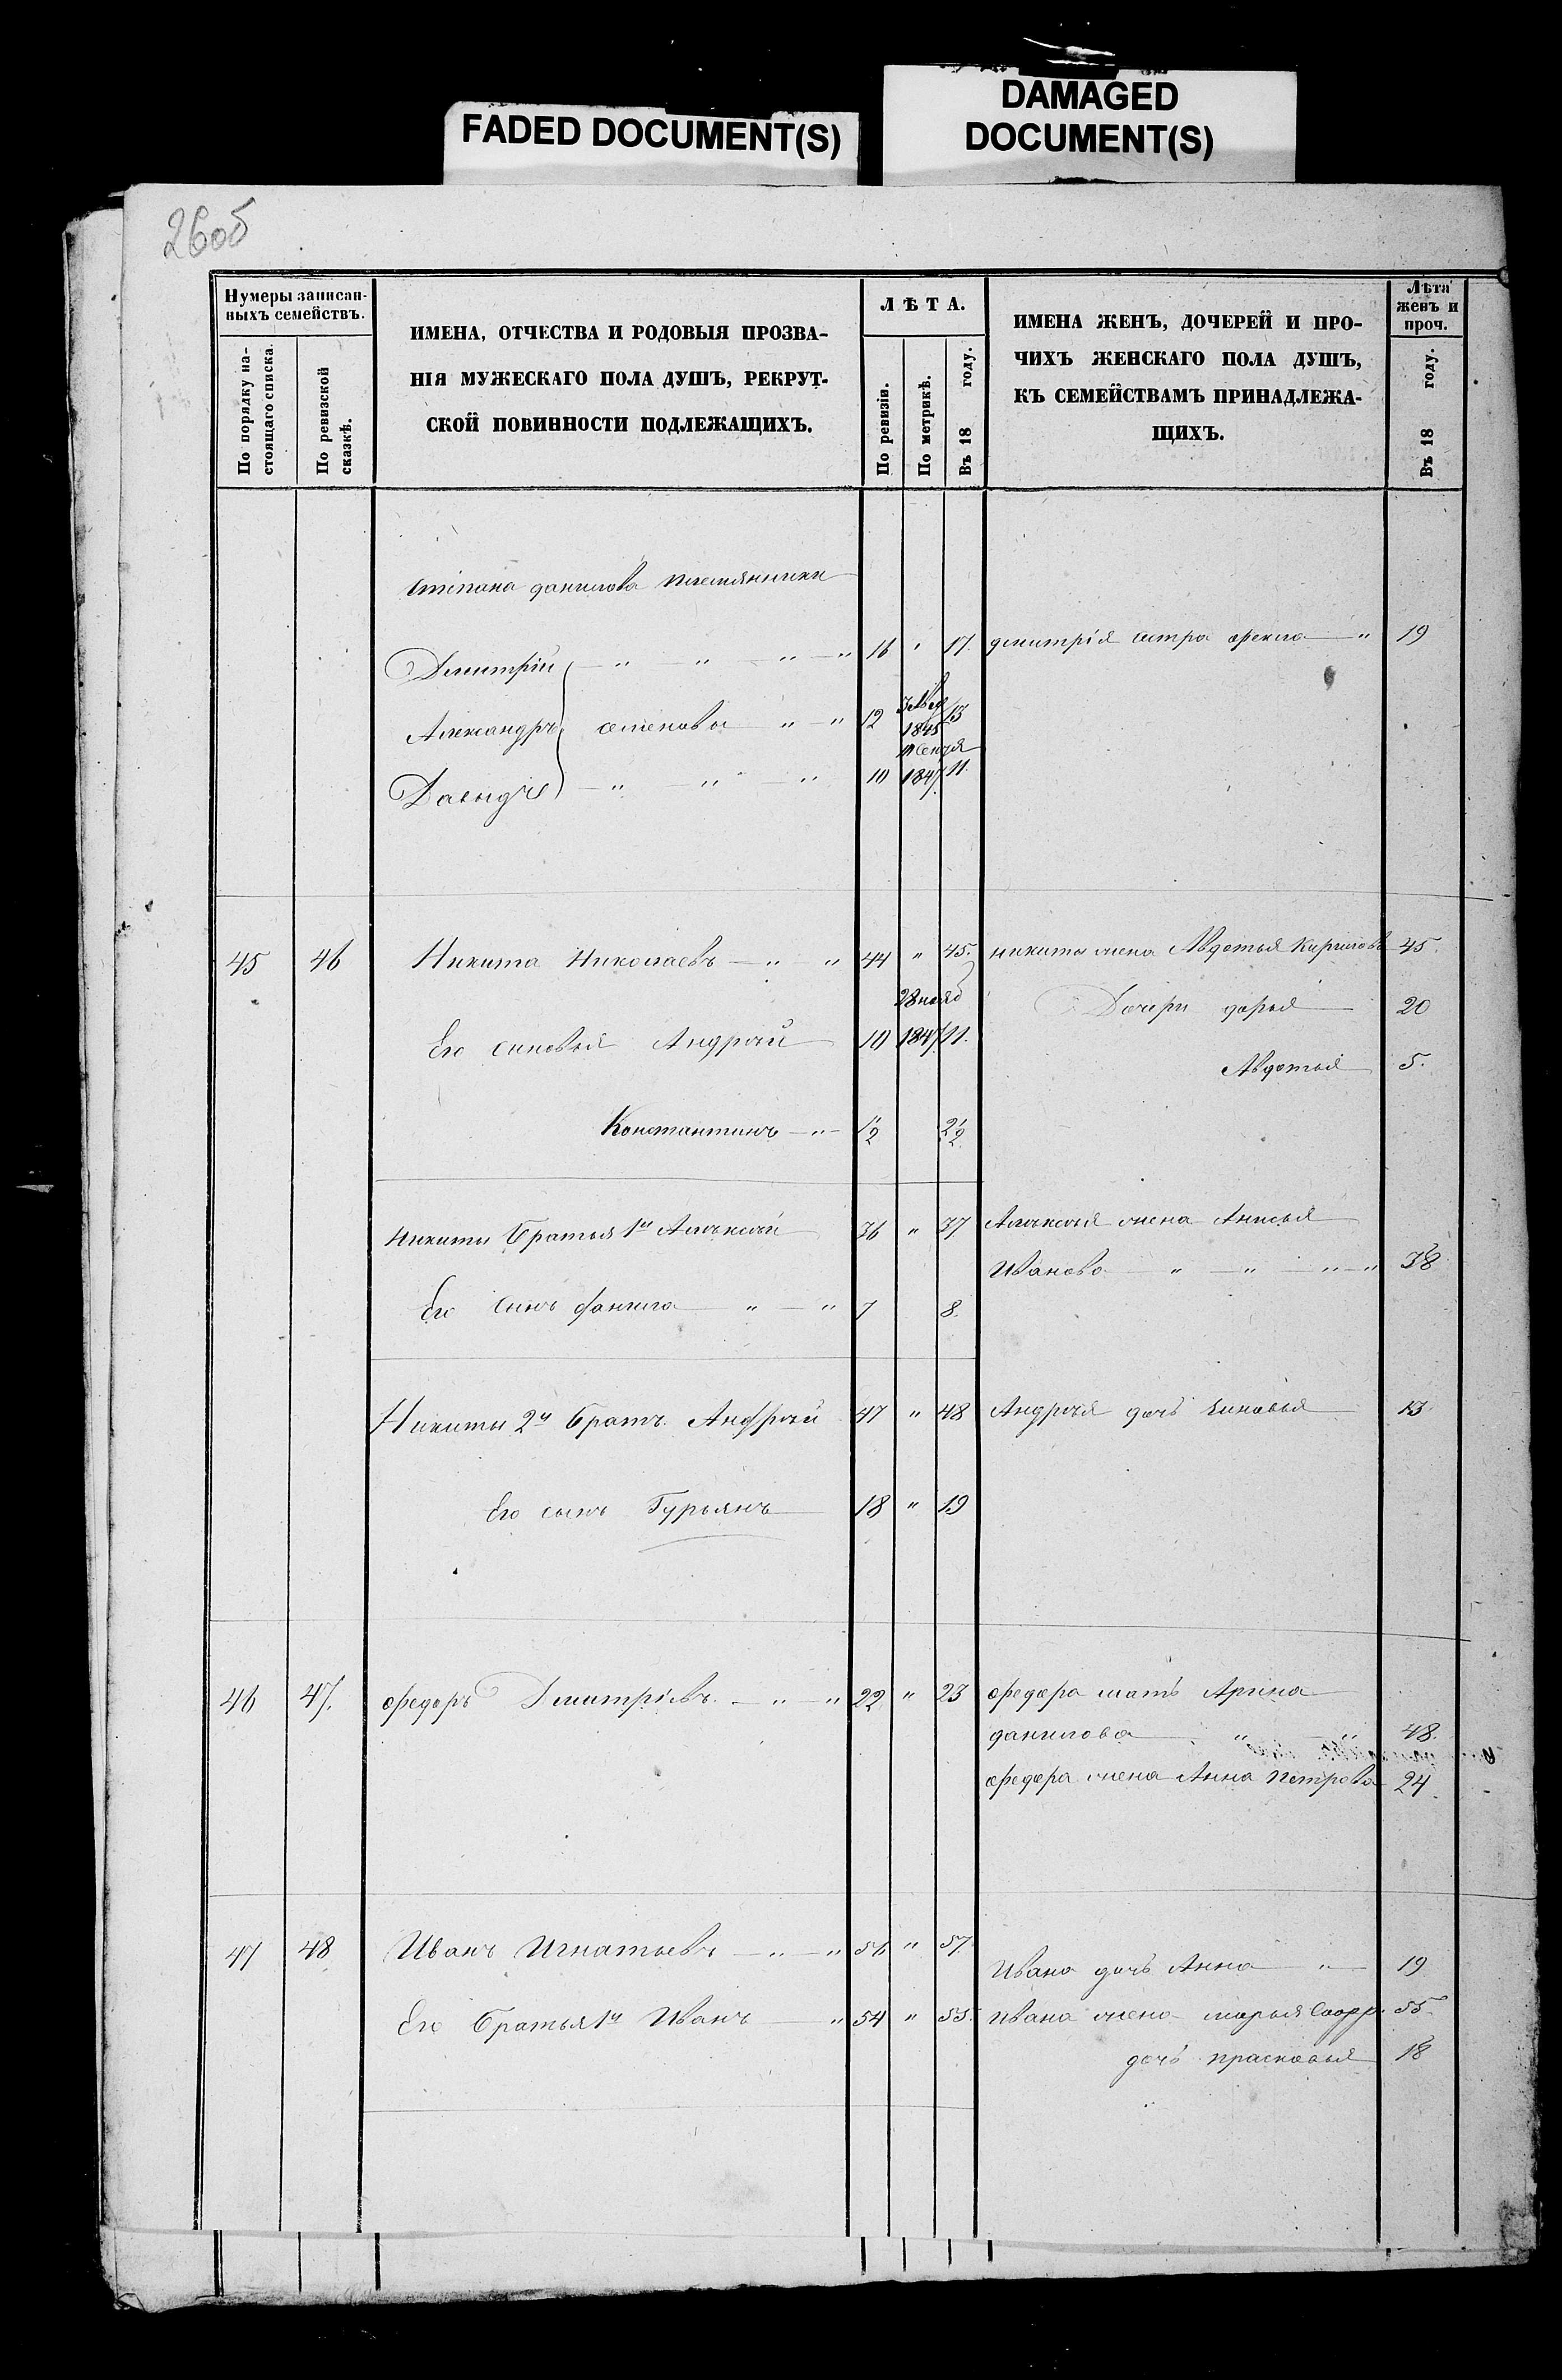 FADED DOCUMENT(S)
DAMAGED
DOCUMENT(S)
260об
Нумеры записан-
ныхъ семействъ.
По порядку на-
стоящаго списка.
По ревизской
сказкѣ.
ИМЕНА, ОТЧЕСТВА И РОДОВЫЯ ПРОЗВА-
НІЯ МУЖЕСКАГО ПОЛА ДУШЪ, РЕКРУТ-
СКОЙ ПОВИННОСТИ ПОДЛЕЖАЩИХЪ.
ЛѢТА.
По ревизіи.
По метрикѣ.
Въ 18 году.
ИМЕНА ЖЕНЪ, ДОЧЕРЕЙ И ПРО-
ЧИХЪ ЖЕНСКАГО ПОЛА ДУШЪ,
КЪ СЕМЕЙСТВАМЪ ПРИНАДЛЕЖА-
ЩИХЪ.
Лѣта
женъ и
проч.
Въ 18 году.
Степана данилова племянники
Дмитрій — " — " — " — " 16 " 17. дмитрія сестра фекла — " 19
Александръ семеновы " — " 12 1845 13
Давыдъ — " — " — " 10 1847. 11.
45 46 Никита Николаевъ — " " 44 " 45. никиты жена Авдотья Кирилова 45.
28 нояб Дочери дарья — 20
Его сыновья Андрѣй 10 1847 11.
Авдотья 5.
Константинъ — " — 1/2 2 1/2
никиты братья 1й Алѣксѣй 36 " 37 Алѣксѣя жена Анисья
Иванова " — " — " — " 38
Его сынъ данила — " — " 7 8.
Никиты 2й братъ Андрѣй 47 " 48 Андрѣя дочь Зиновья 13
Его сынъ Гурьянъ 18 " 19
46 47. федоръ Дмитріевъ. — " — " 22 " 23 федора мать Арина
данилова " — " 48.
федора жена Анна Петрова 24.
47 48 Иванъ Игнатьевъ — " — " 56 " 57.
Ивана дочь Анна — " — 19
Его братья 1й Иванъ — " 54 " 55. Ивана жена марья 55.
дочь прасковья 18